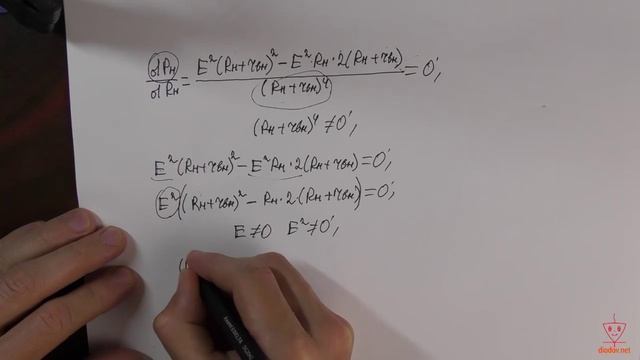 dPн/dRн = E²(Rн+rвн)² − E²·Rн·2(Rн+rвн) / (Rн+rвн)⁴ = 0;
(Rн+rвн)⁴ ≠ 0;
E²(Rн+rвн)² − E²Rн·2(Rн+rвн) = 0;
E²((Rн+rвн)² − Rн·2·(Rн+rвн)) = 0;
E ≠ 0 E² ≠ 0;
(
diodov.net